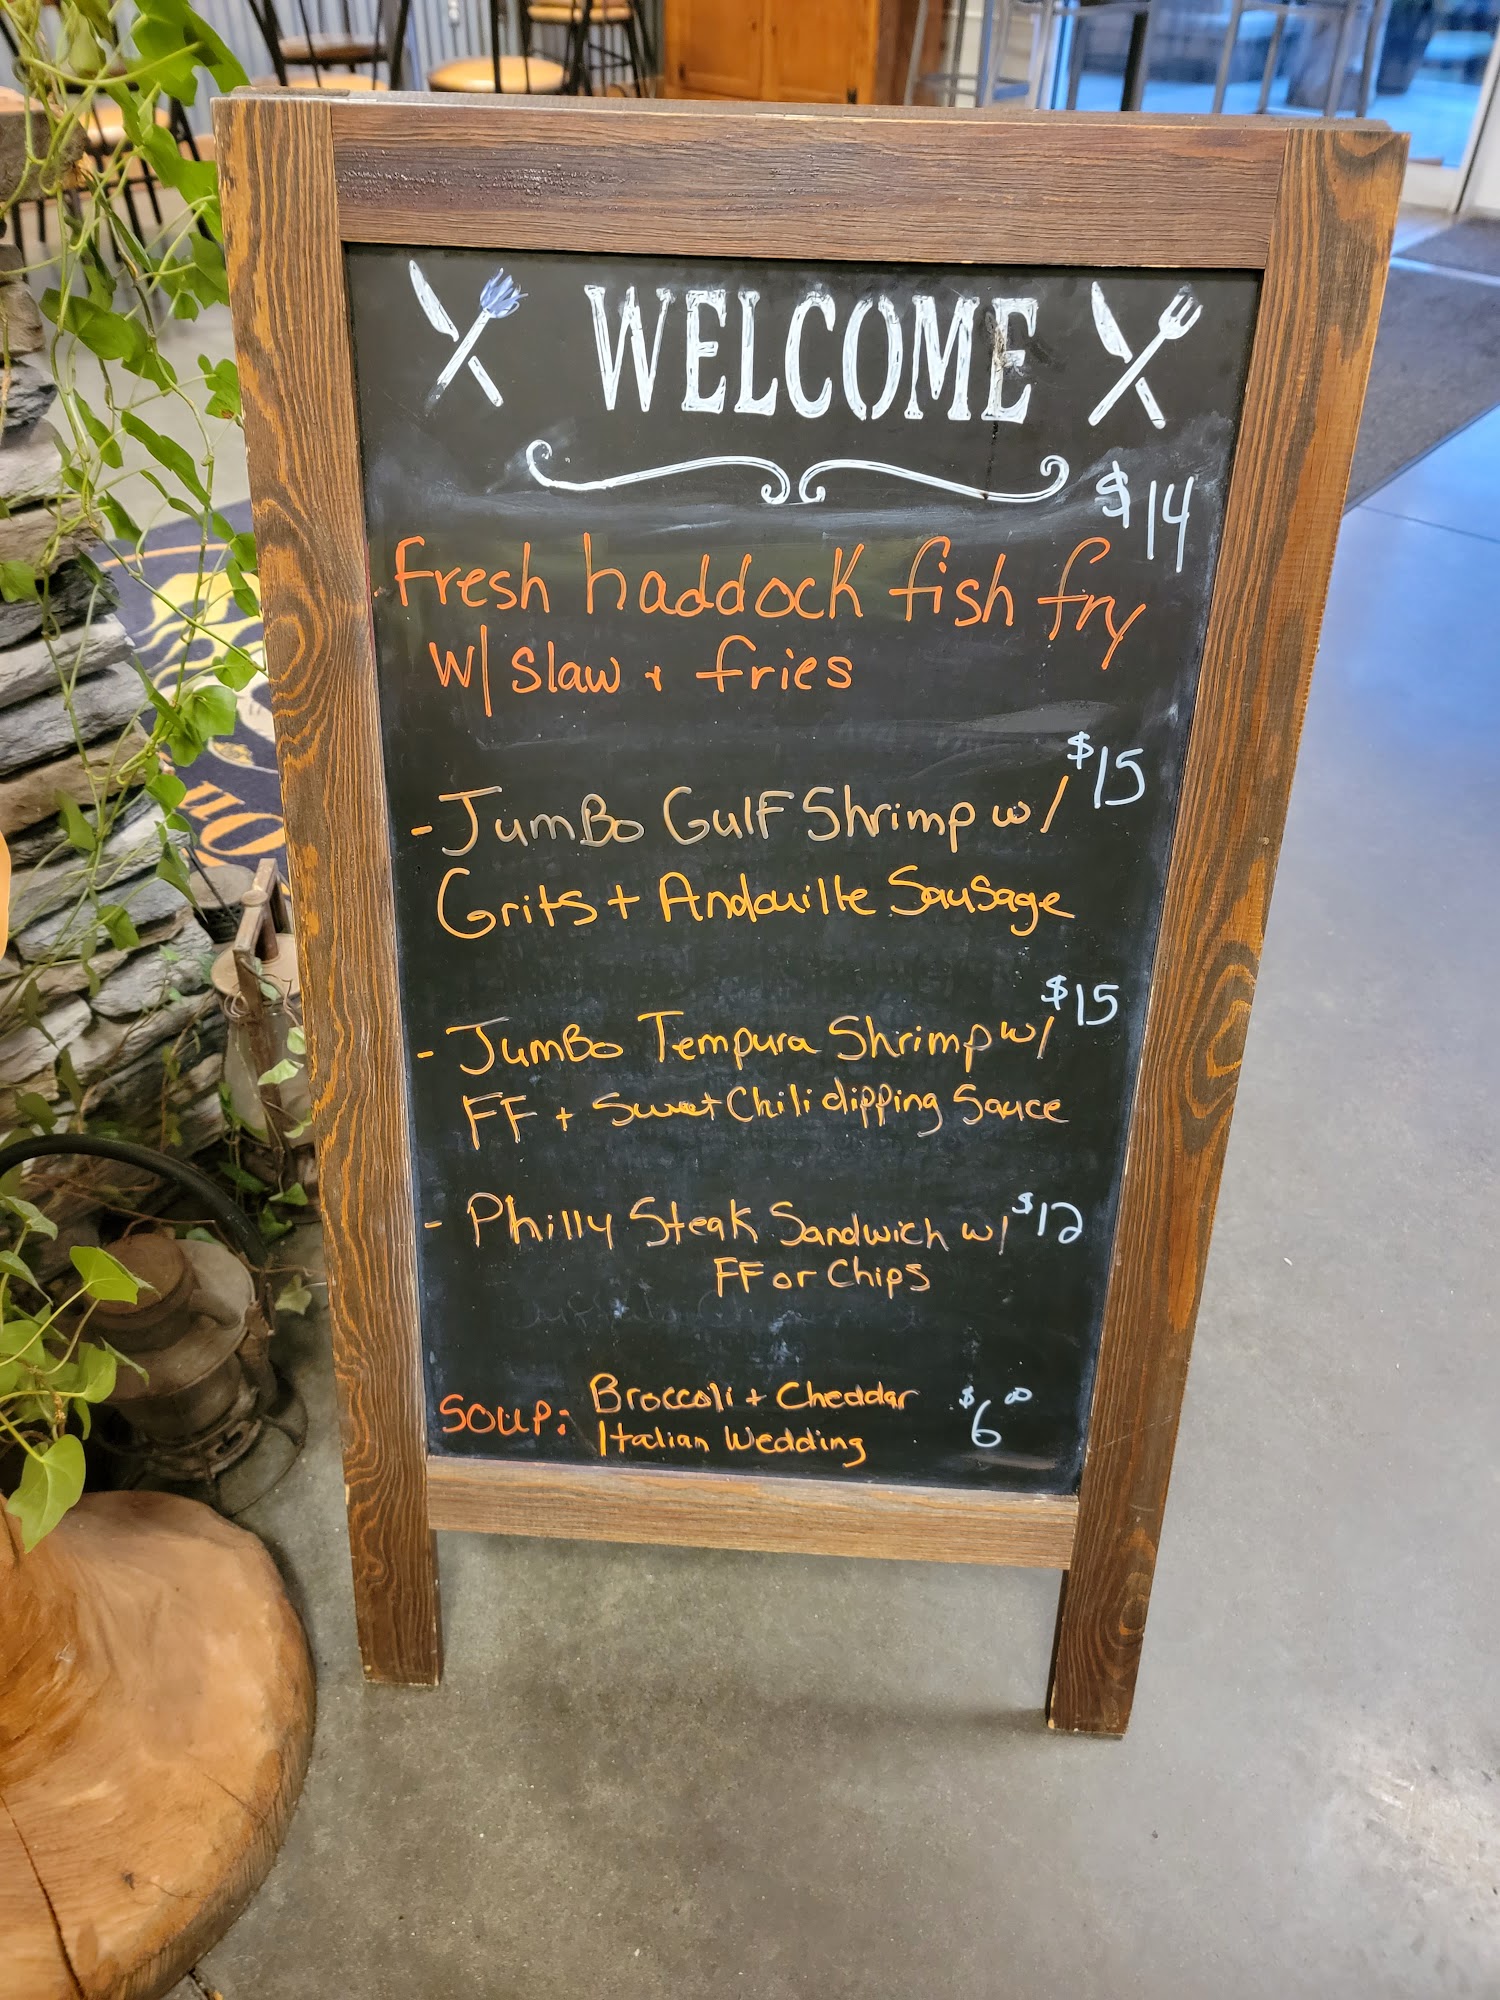 WELCOME
$14
Fresh haddock fish fry
w/ slaw + fries
$15
- Jumbo Gulf Shrimp w/
Grits + Andouille Sausage
$15
- Jumbo Tempura Shrimp w/
FF + Sweet Chili dipping Sauce
- Philly Steak Sandwich w/ $12
FF or Chips
Soup: Broccoli + Cheddar $6.00
Italian Wedding